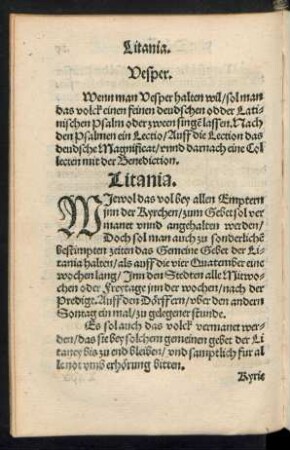 Litania.
Vesper.
Wenn man Vesper halten wil/sol man
das volck einen feinen deudschen odder Lati-
nischen Psalm oder zween singē lassen. Nach
den Psalmen ein Lectio/ Auff die Lection das
deudsche Magnificat/ vnnd darnach eine Col
lecten mit der Benediction.
Litania.
WIewol das vol bey allen Emptern
jnn der Kyrchen/ zum Gebet sol ver
manet vnnd angehalten werden/
Doch sol man auch zu sonderlichē
bestimpten zeiten das Gemeine Gebet der Li
tania halten/ als auff die vier Quatember eine
wochen lang/ Inn den Stedten alle Mitwo-
chen oder Freytage jnn der wochen/ nach der
Predigt. Auff den Dörffern/ vber den andern
Sontag ein mal/ zu gelegener stunde.
Es sol auch das volck vermanet wer-
den/ das sie bey solchem gemeinen gebet der Li
taney bis zu end bleiben/ vnd samptlich fur al
le not vmb erhörung bitten.
Kyrie